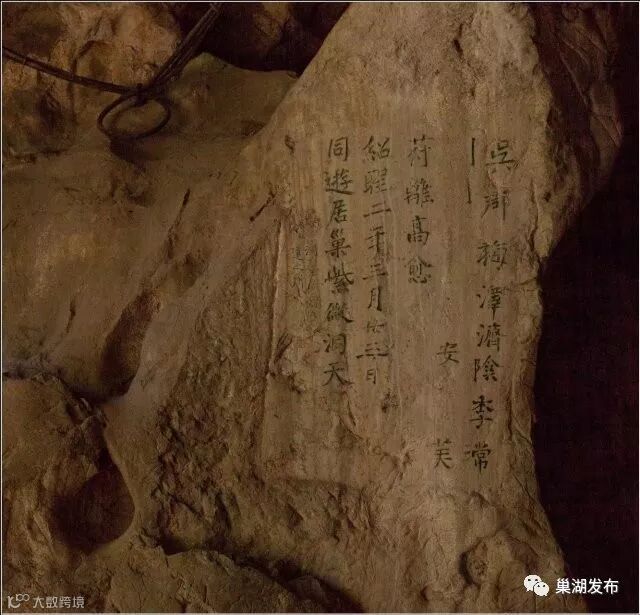 吳郡梅澤濟陰李常
符離高愈
安
芙
紹聖二年三月廿三日
同遊居巢紫微洞天
大数跨境
巢湖发布